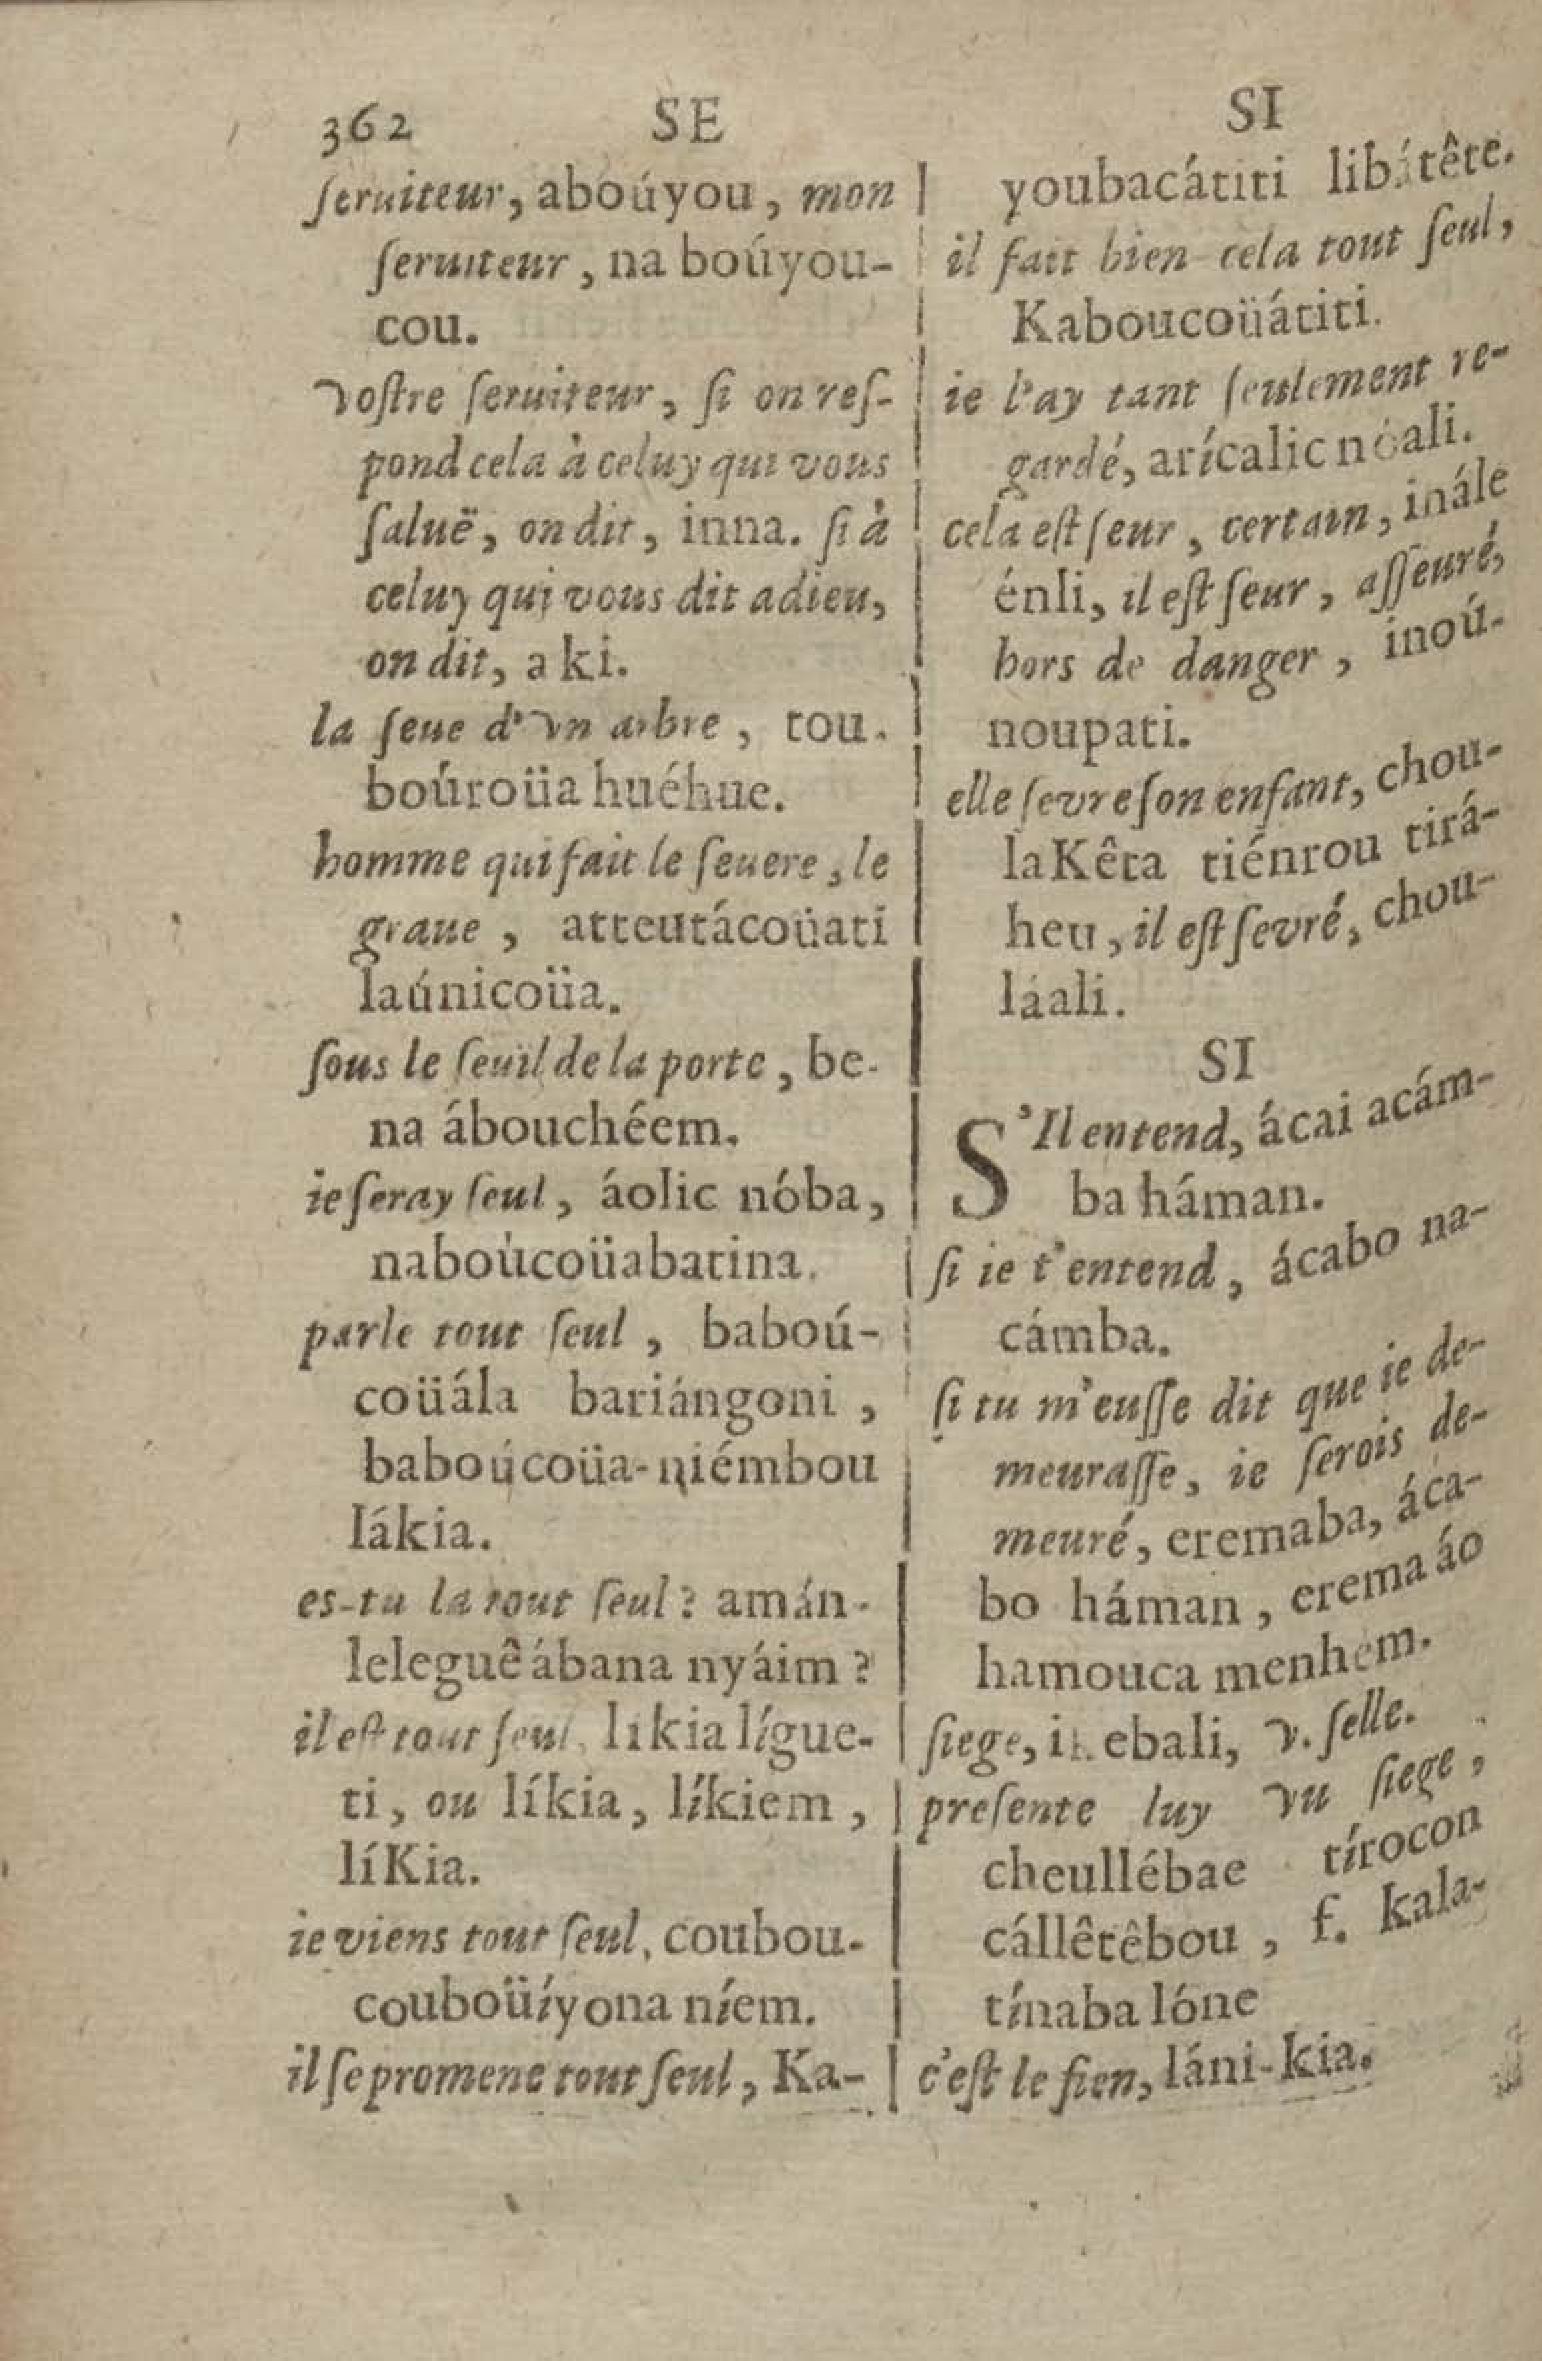 362 SE
ſeruiteur, aboúyou, mon
ſeruiteur, na boúyou-
cou.
voſtre ſeruiteur, ſi on reſ-
pond cela à celuy qui vous
ſaluë, on dit, inna. ſi à
celuy qui vous dit adieu,
on dit, a ki.
la ſeue d'vn arbre, tou.
boúroüa huéhue.
homme qui fait le ſeuere, le
graue, atteutácoüati
laúnicoüa.
ſous le ſeuil de la porte, be-
na ábouchéem.
ie ſeray ſeul, áolic nóba,
naboùcoüabatina.
parle tout ſeul, baboú-
coüála bariángoni,
baboúcoüa-niémbou
lákia.
es-tu la tout ſeul? amán-
leleguê ábana nyáim?
il eſt tout ſeul, likia lígue-
ti, ou líkia, líkiem,
líKia.
ie viens tout ſeul, coubou-
couboüíyona níem.
il ſe promene tout ſeul, Ka-
SI
youbacátiti libátête.
il fait bien cela tout ſeul,
Kaboucoüátiti.
ie l'ay tant ſeulement re-
gardé, arícalic nóali.
cela eſt ſeur, certain, inále
énli, il eſt ſeur, aſſeuré,
hors de danger, inoú-
noupati.
elle ſevre ſon enfant, chou-
laKêta tiénrou tirá-
heu, il eſt ſevré, chou-
láali.
SI
S'Il entend, ácai acám-
ba háman.
ſi ie t'entend, ácabo na-
cámba.
ſi tu m'euſſe dit que ie de-
meuraſſe, ie ſerois de-
meuré, eremaba, áca-
bo háman, erema áo
hamouca menhem.
ſiege, ebali, v. ſelle.
preſente luy vu ſiege,
cheullébae tírocon
cállêtêbou, f. kala-
tínaba lóne
c'eſt le ſien, láni-kia.